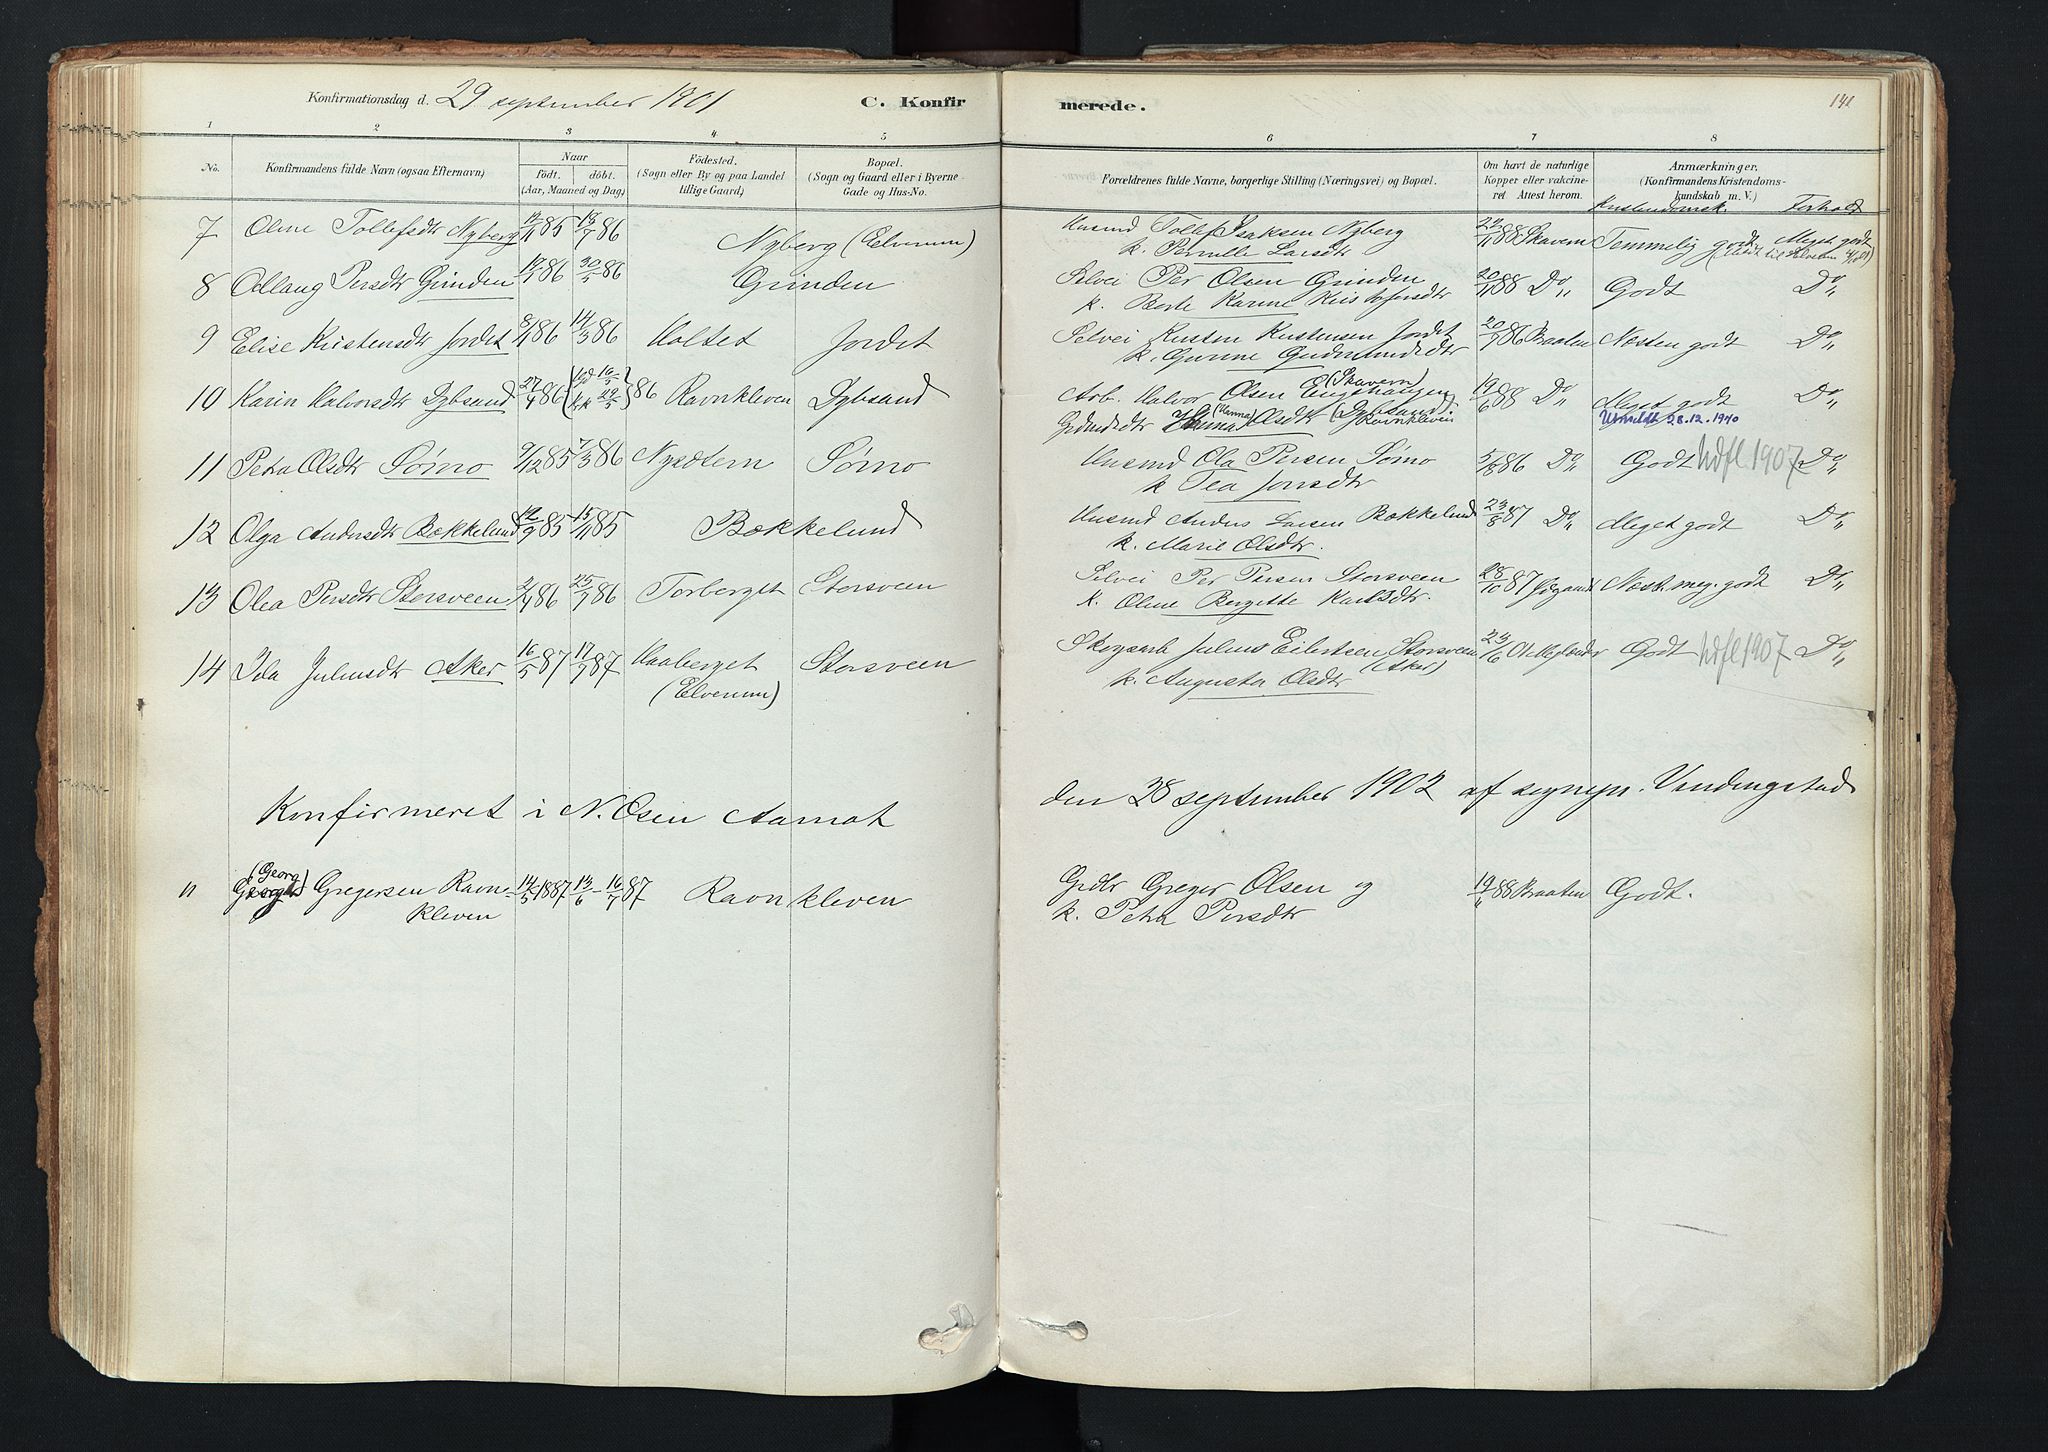 Konfirmationsdag d. 29 september 1901 C. Konfir merede. 141
1 2 3 4 5 6 7 8
No. Konfirmandens fulde Navn (ogsaa Efternavn) Naar Födt. döbt. (Aar, Maaned og Dag) Födested. (Sogn eller By og paa Landet tillige Gaard) Bopæl. (Sogn og Gaard eller i Byerne Gade og Hus-No. Forældrenes fulde Navne, borgerlige Stilling (Næringsvei) og Bopæl. Om havt de naturlige Kopper eller vakcineret Attest herom. Anmærkninger. (Konfirmandens Kristendomskundskab m. V.)
Kristendomsk. Forhold
7 Oline Tollefsdtr Nyberg 14/11 85 18/7 86 Nyberg (Elverum) Husmd Tollef Isaksen Nyberg 22/11 88 Skavern Temmelig godt Meget godt
k. Pernille Larsdtr
8 Odlaug Persdtr Grinden 86 30/5 86 Grinden Selvei Per Olsen Grinden 20/11 88 Do Godt Do
k. Berte Karine Kristofersdtr
9 Elise Kristensdtr Jordet 86 14/3 86 Holtet Jordet Selvei Kristen Kristensen Jordet 20/7 86 Braaten Næsten godt Do
k. Gurine Gudmundsdtr
10 Karin Halvorsdtr Dybsand 27/4 86 (hjd 16/5 kirk 29/5) 86 Ravnkleven Dybsand Arb. Halvor Olsen Engehaugen (Skavern) 19/6 88 Do Meget godt Do
Gdmdsdtr (Hanna) Olsdtr (Dybsand) Ravnkleven Utmeldt 28.12.1940
11 Petra Olsdtr Sörno 9/12 85 7/3 86 Nysætern Sörno Husmd Ola Persen Sörno 5/8 86 Do Godt Udfl 1907 Do
k Tea Jonsdtr
12 Olga Andersdtr Bækkelund 12/9 85 15/11 85 Bækkelund Husmd Anders Larsen Bækkelund 23/8 87 Do Meget godt Do
k. Marie Olsdtr.
13 Olea Persdtr Storsveen 2/4 86 25/7 86 Torberget Storsveen Selvei Per Persen Storsveen 28/10 87 Næst. meg. godt Do
k. Oline Bergette Karlsdtr.
14 Ida Juliusdtr Aker 16/5 87 17/7 87 Haaberget Storsveen Skogsarb Julius Eilertsen Storsveen 23/6 Godt Udfl 1907 Do
(Elverum) (Aker)
k. Augusta Olsdtr
Konfirmeret i N. Osen Aamot den 28 september 1902 af sognepr. Vendingstad
(Georg)
11 Gregersen Ravnkleven 14/5 1887 13/6 – 16/7 87 Ravnkleven Grdbr Greger Olsen og 19/6 88 Braaten Godt.
k. Petra Persdtr